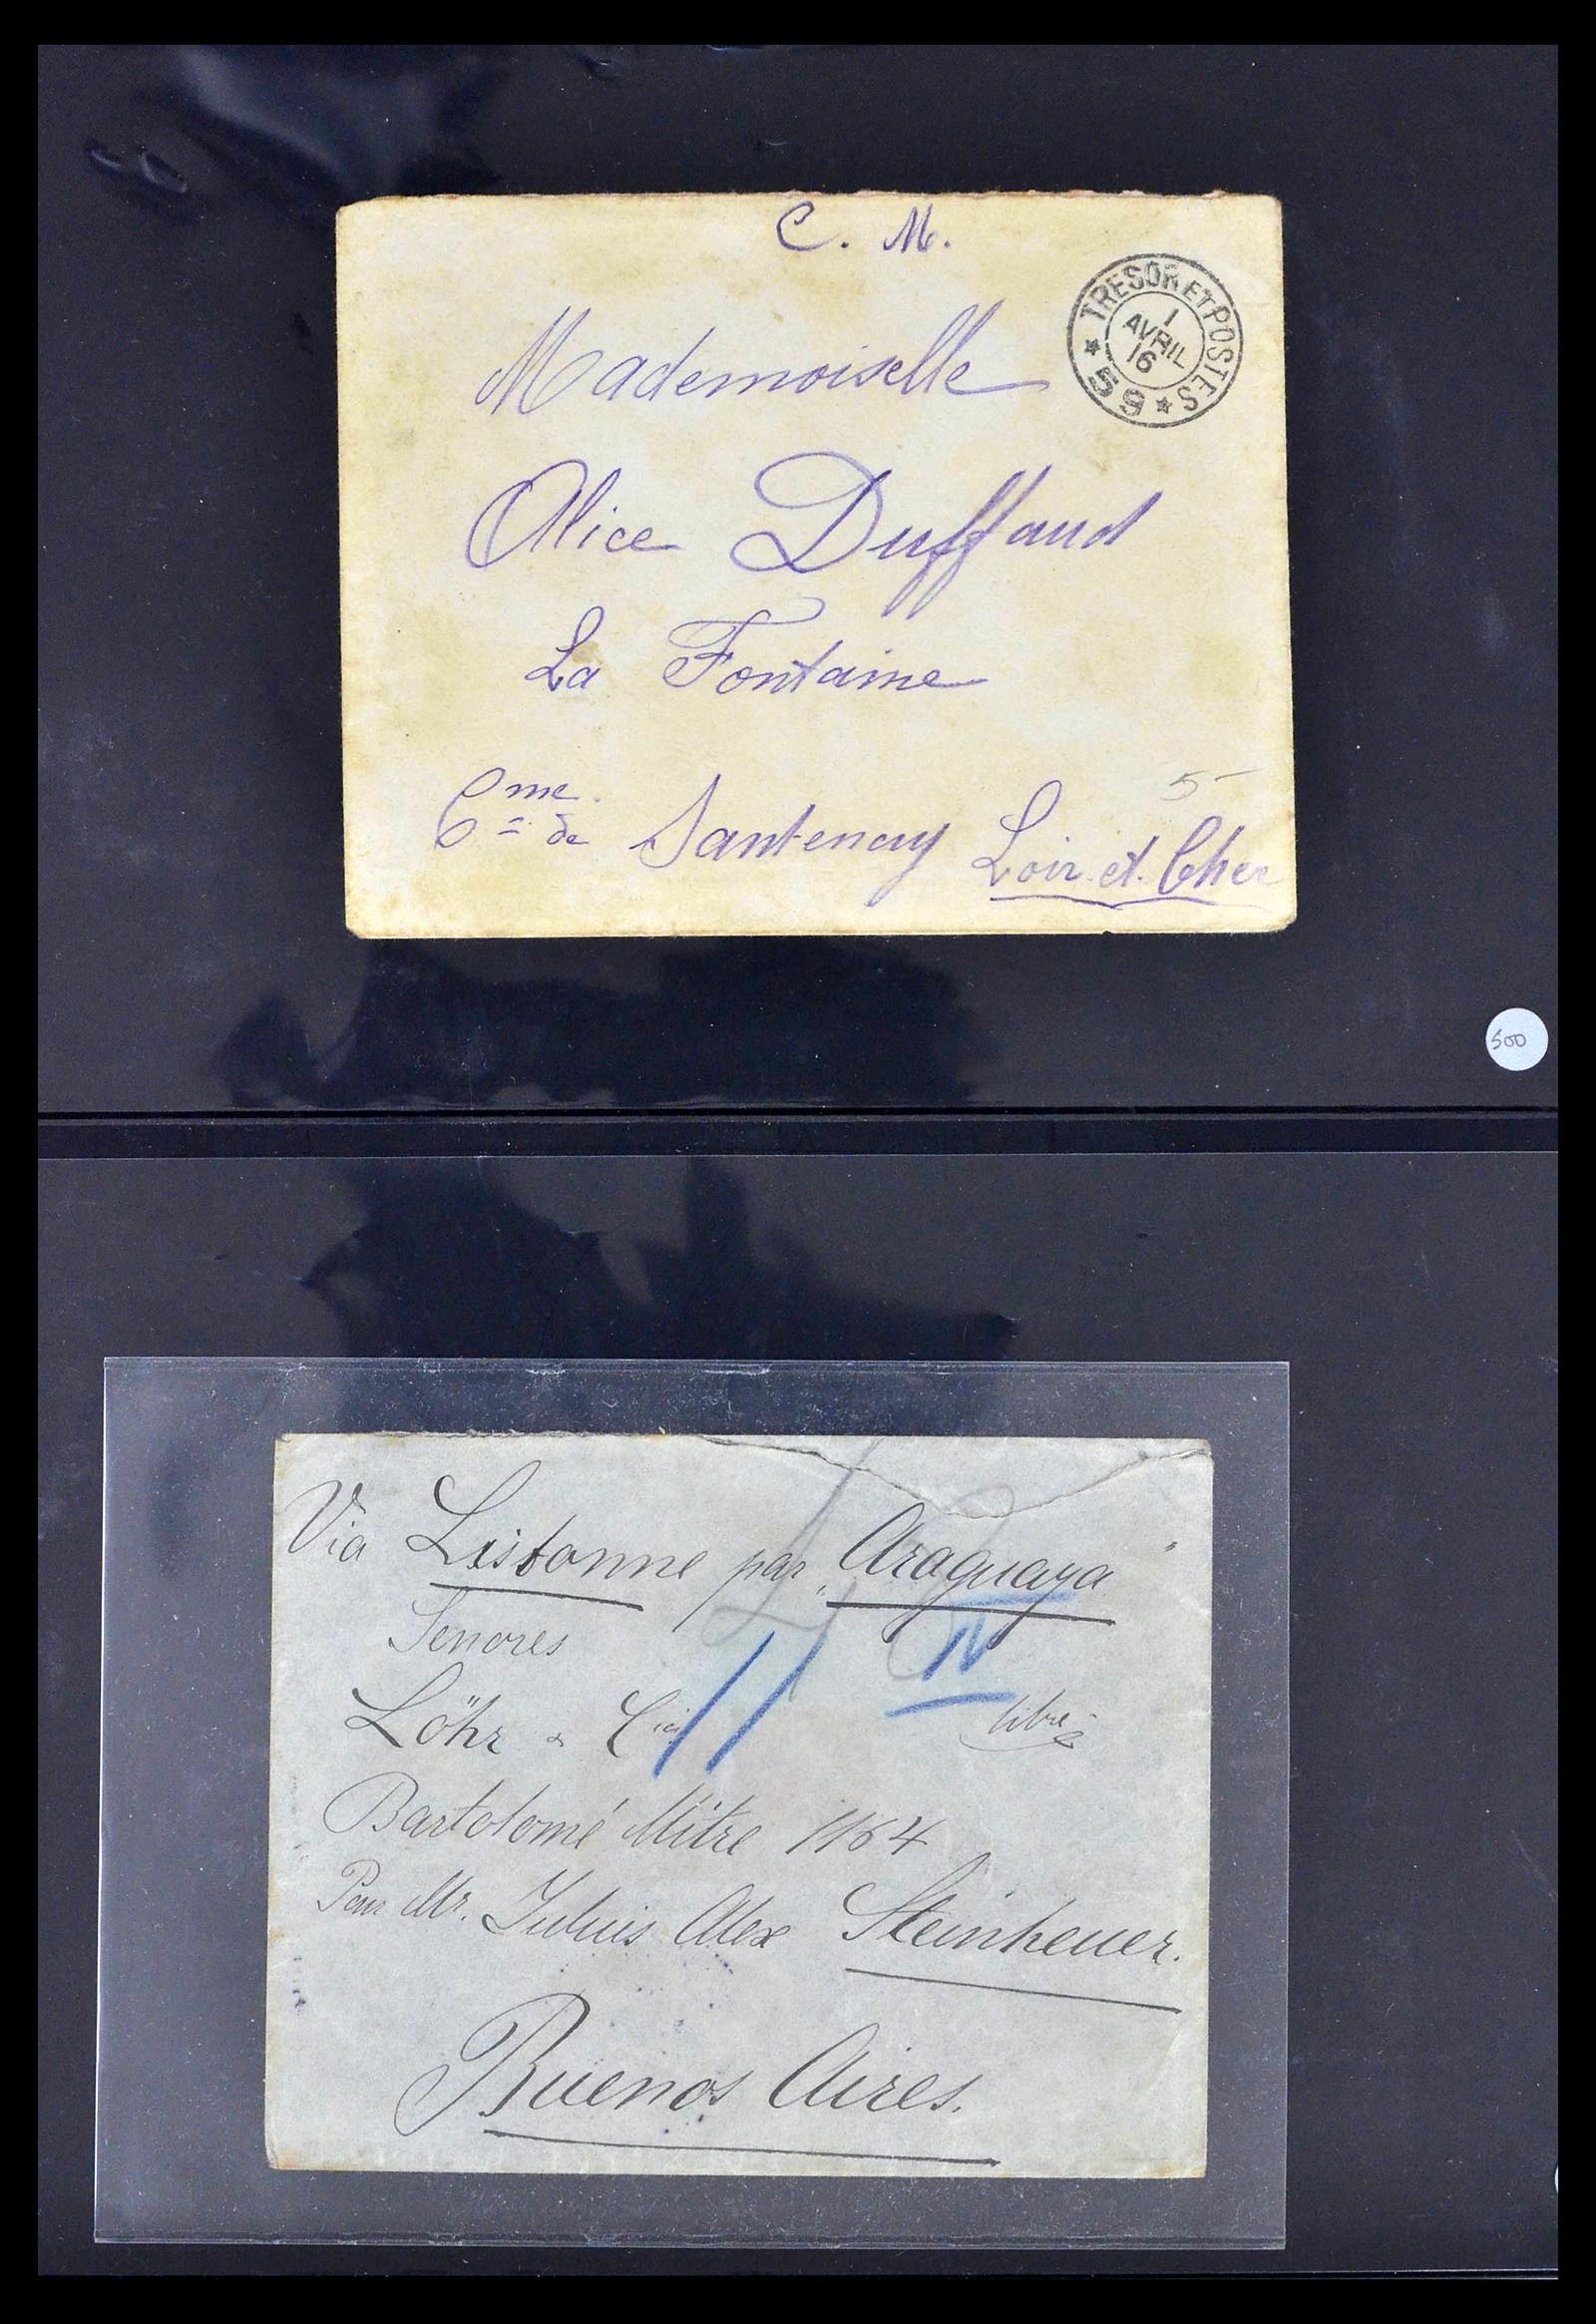 C. M.
TRESOR ET POSTES
1
AVRIL
16
* 59 *
Mademoiselle
Alice Duffaud
La Fontaine
5-
Cme de Santenay Loir et Cher
500
Via Lisbonne par „Araguaya"
IV
Senores
Löhr & Cia
libre
Bartolomé Mitre 1164
Pour Mr. Julius Alex Steinheuer.
Buenos Aires.